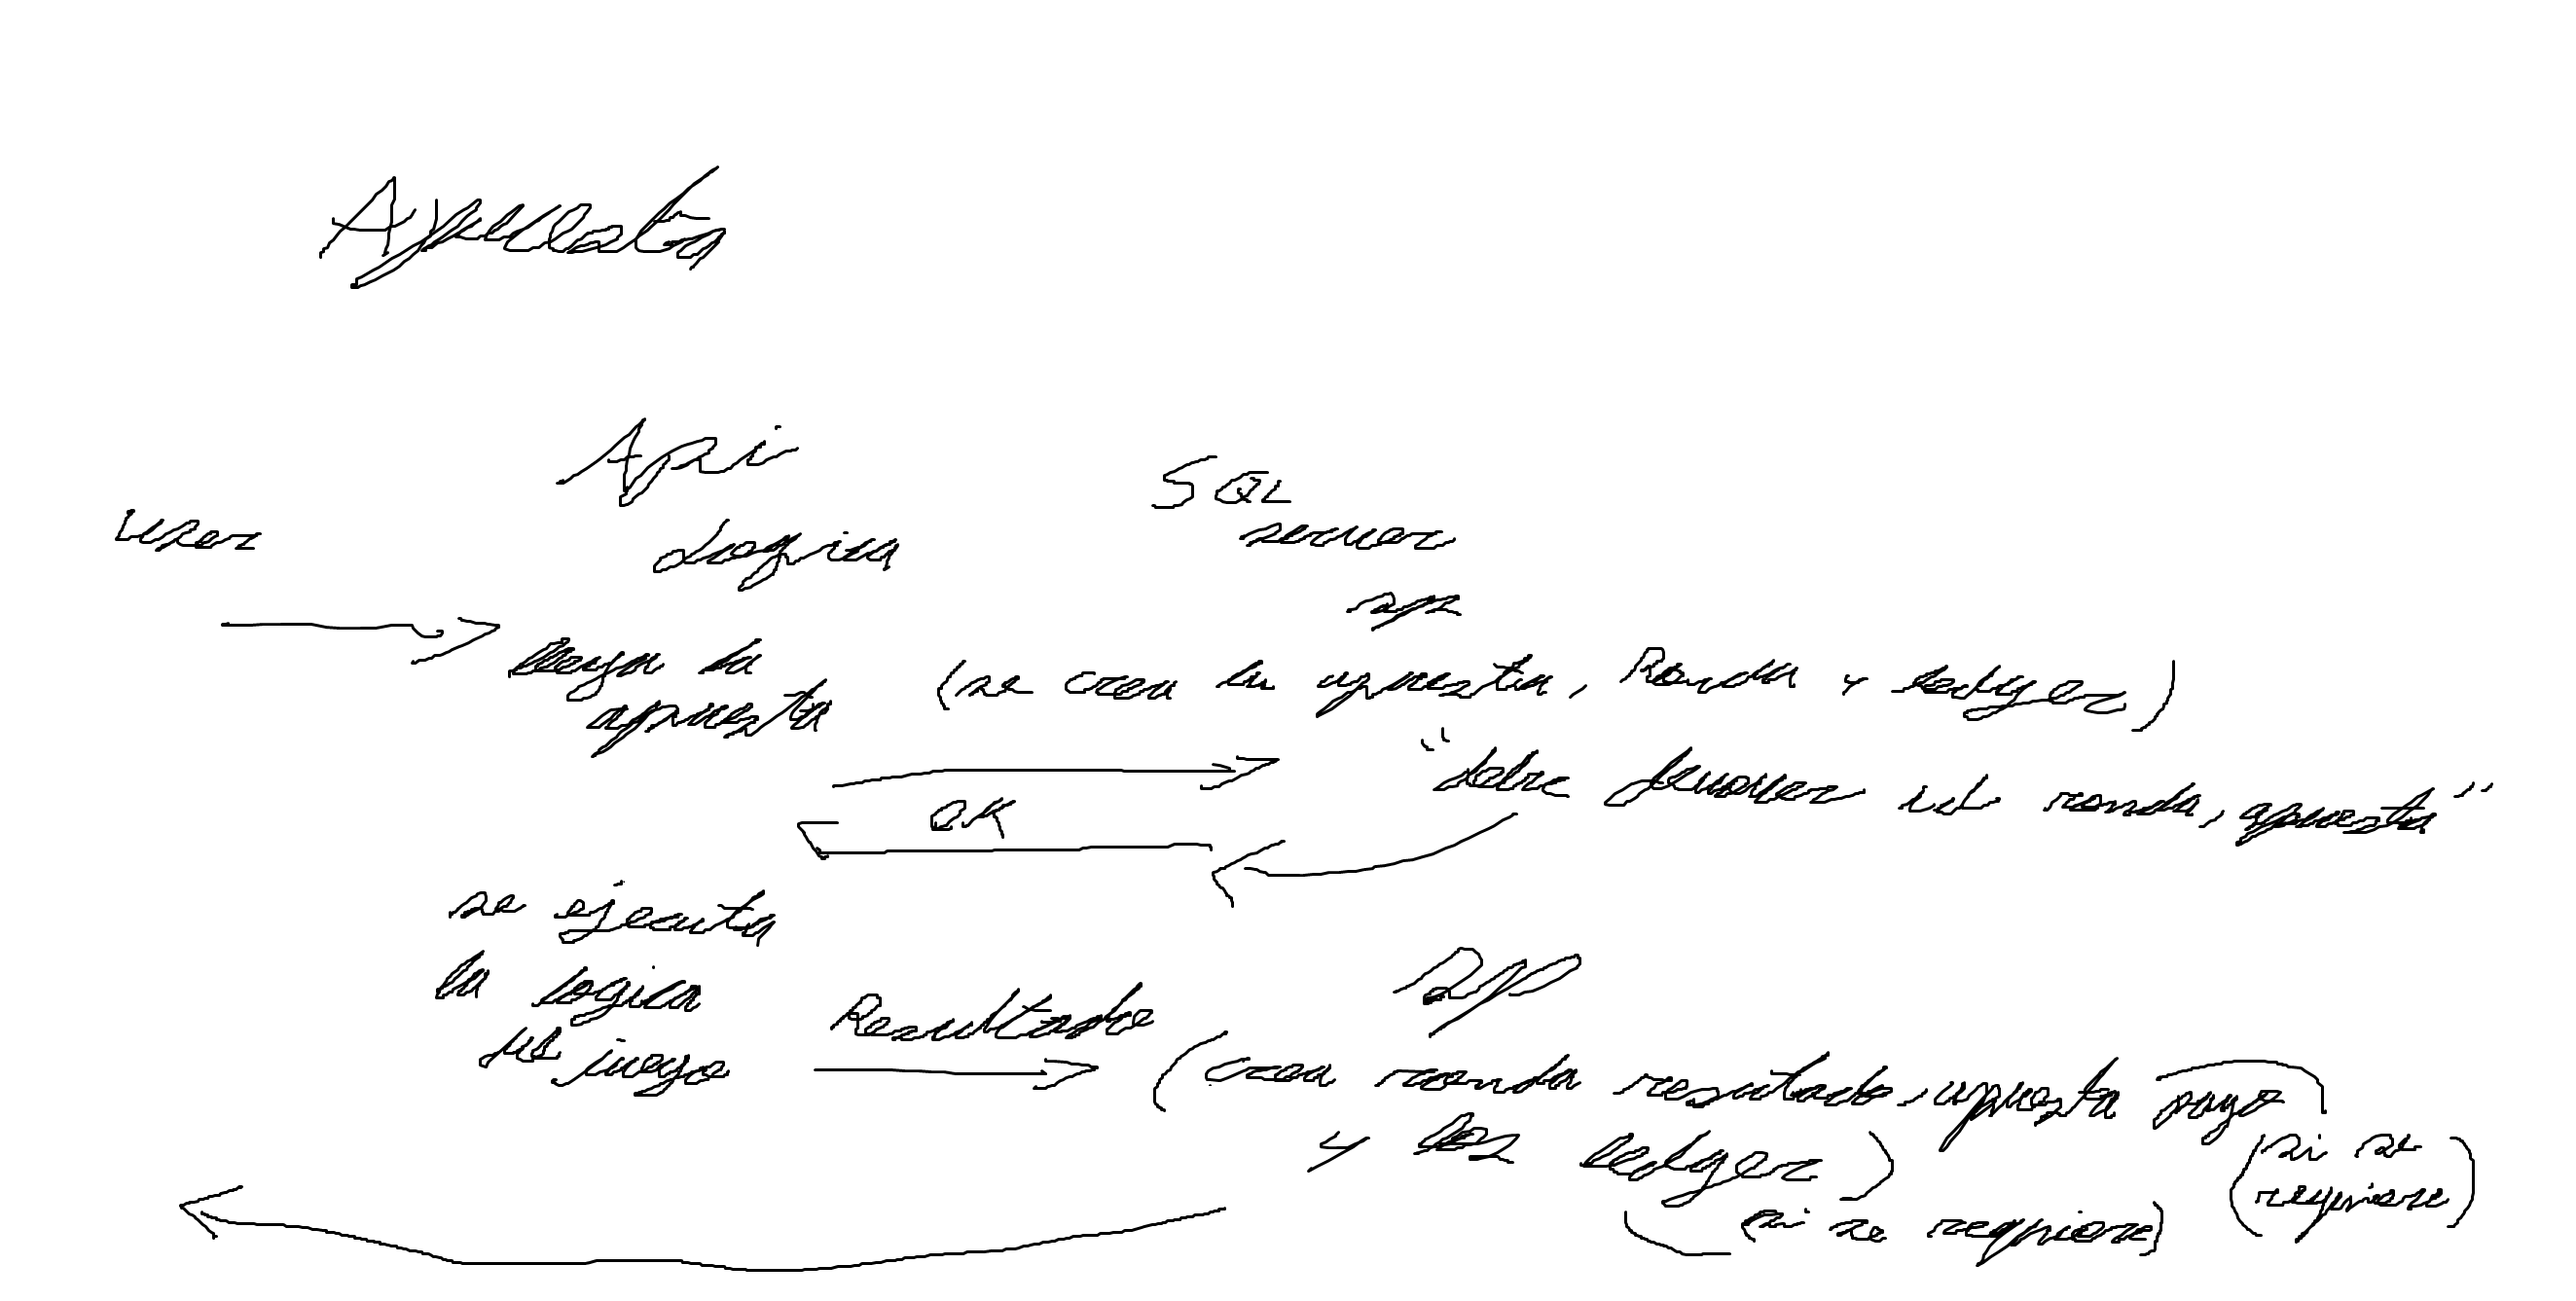 Apuesta
Api
Logica
user
SQL
server
sps
llega la
apuesta
(se crea la apuesta, Ronda y ledger)
"debe devover id ronda, apuesta"
OK
se ejecuta
la logica
del juego
Resultado
sp
(crea ronda resultado, apuesta pago
y los ledger)
(si se
requiere)
(si se requiere)